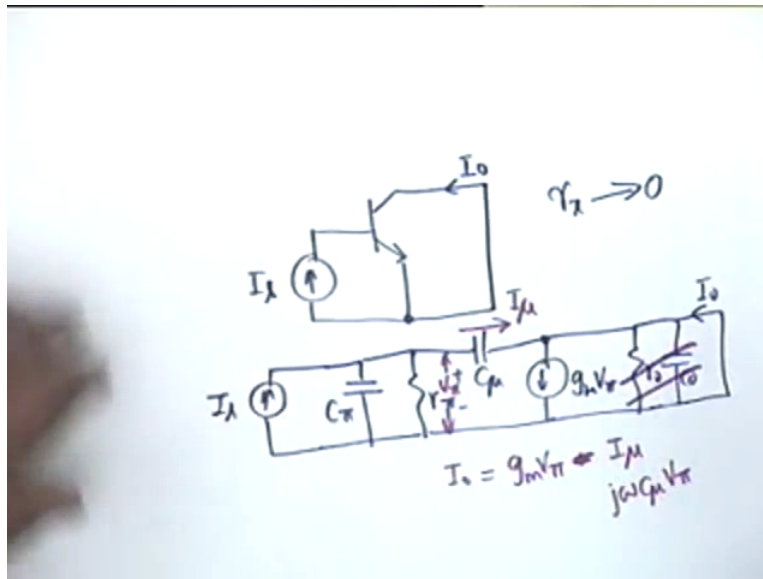 I₀
rₓ → 0
Iᵢ
Iμ
I₀
Iᵢ
Cπ
rπ
+
Vπ
-
Cμ
gₘVπ
r₀
C₀
I₀ = gₘVπ - Iμ
jωCμVπ